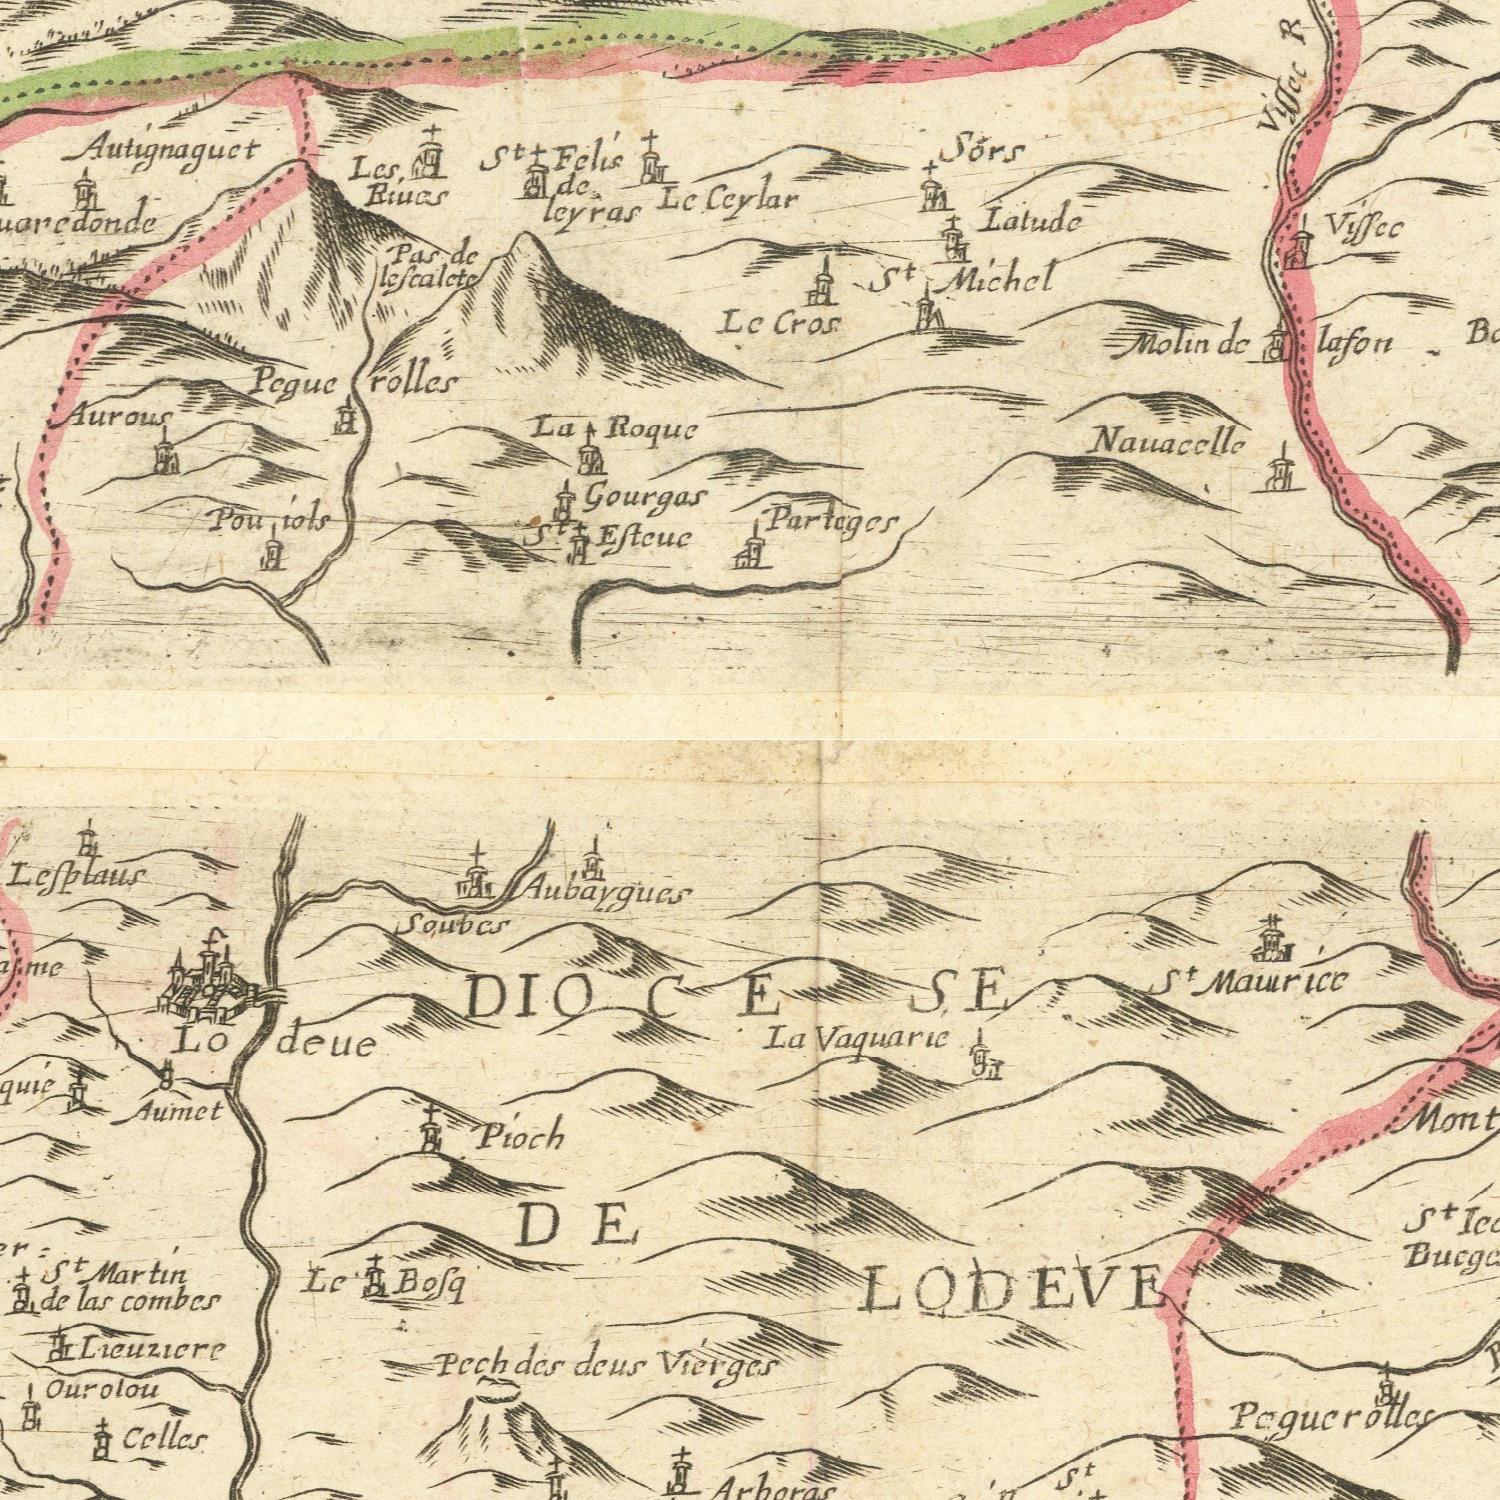 Vissec R
Autignaguet
Les
Riues
St Felis
de
leyras
Le Ceylar
Sors
Latude
Vissec
uaredonde
Pas de
lescalete
St Michel
Le Cros
Molin de lafon
Peguerolles
Aurous
La Roque
Nauacelle
Gourgas
Poujols
St Esteue
Parteges
Lesplaus
Aubaygues
Soubes
DIOCESE
St Maurice
Lodeue
La Vaquarie
quie
Aumet
Pioch
Mont
DE
St
Bueges
St Martin
de las combes
Le Bosq
LODEVE
Lieuziere
Pech des deus Vierges
Ourolou
Celles
Peguerolles
St
Arboras